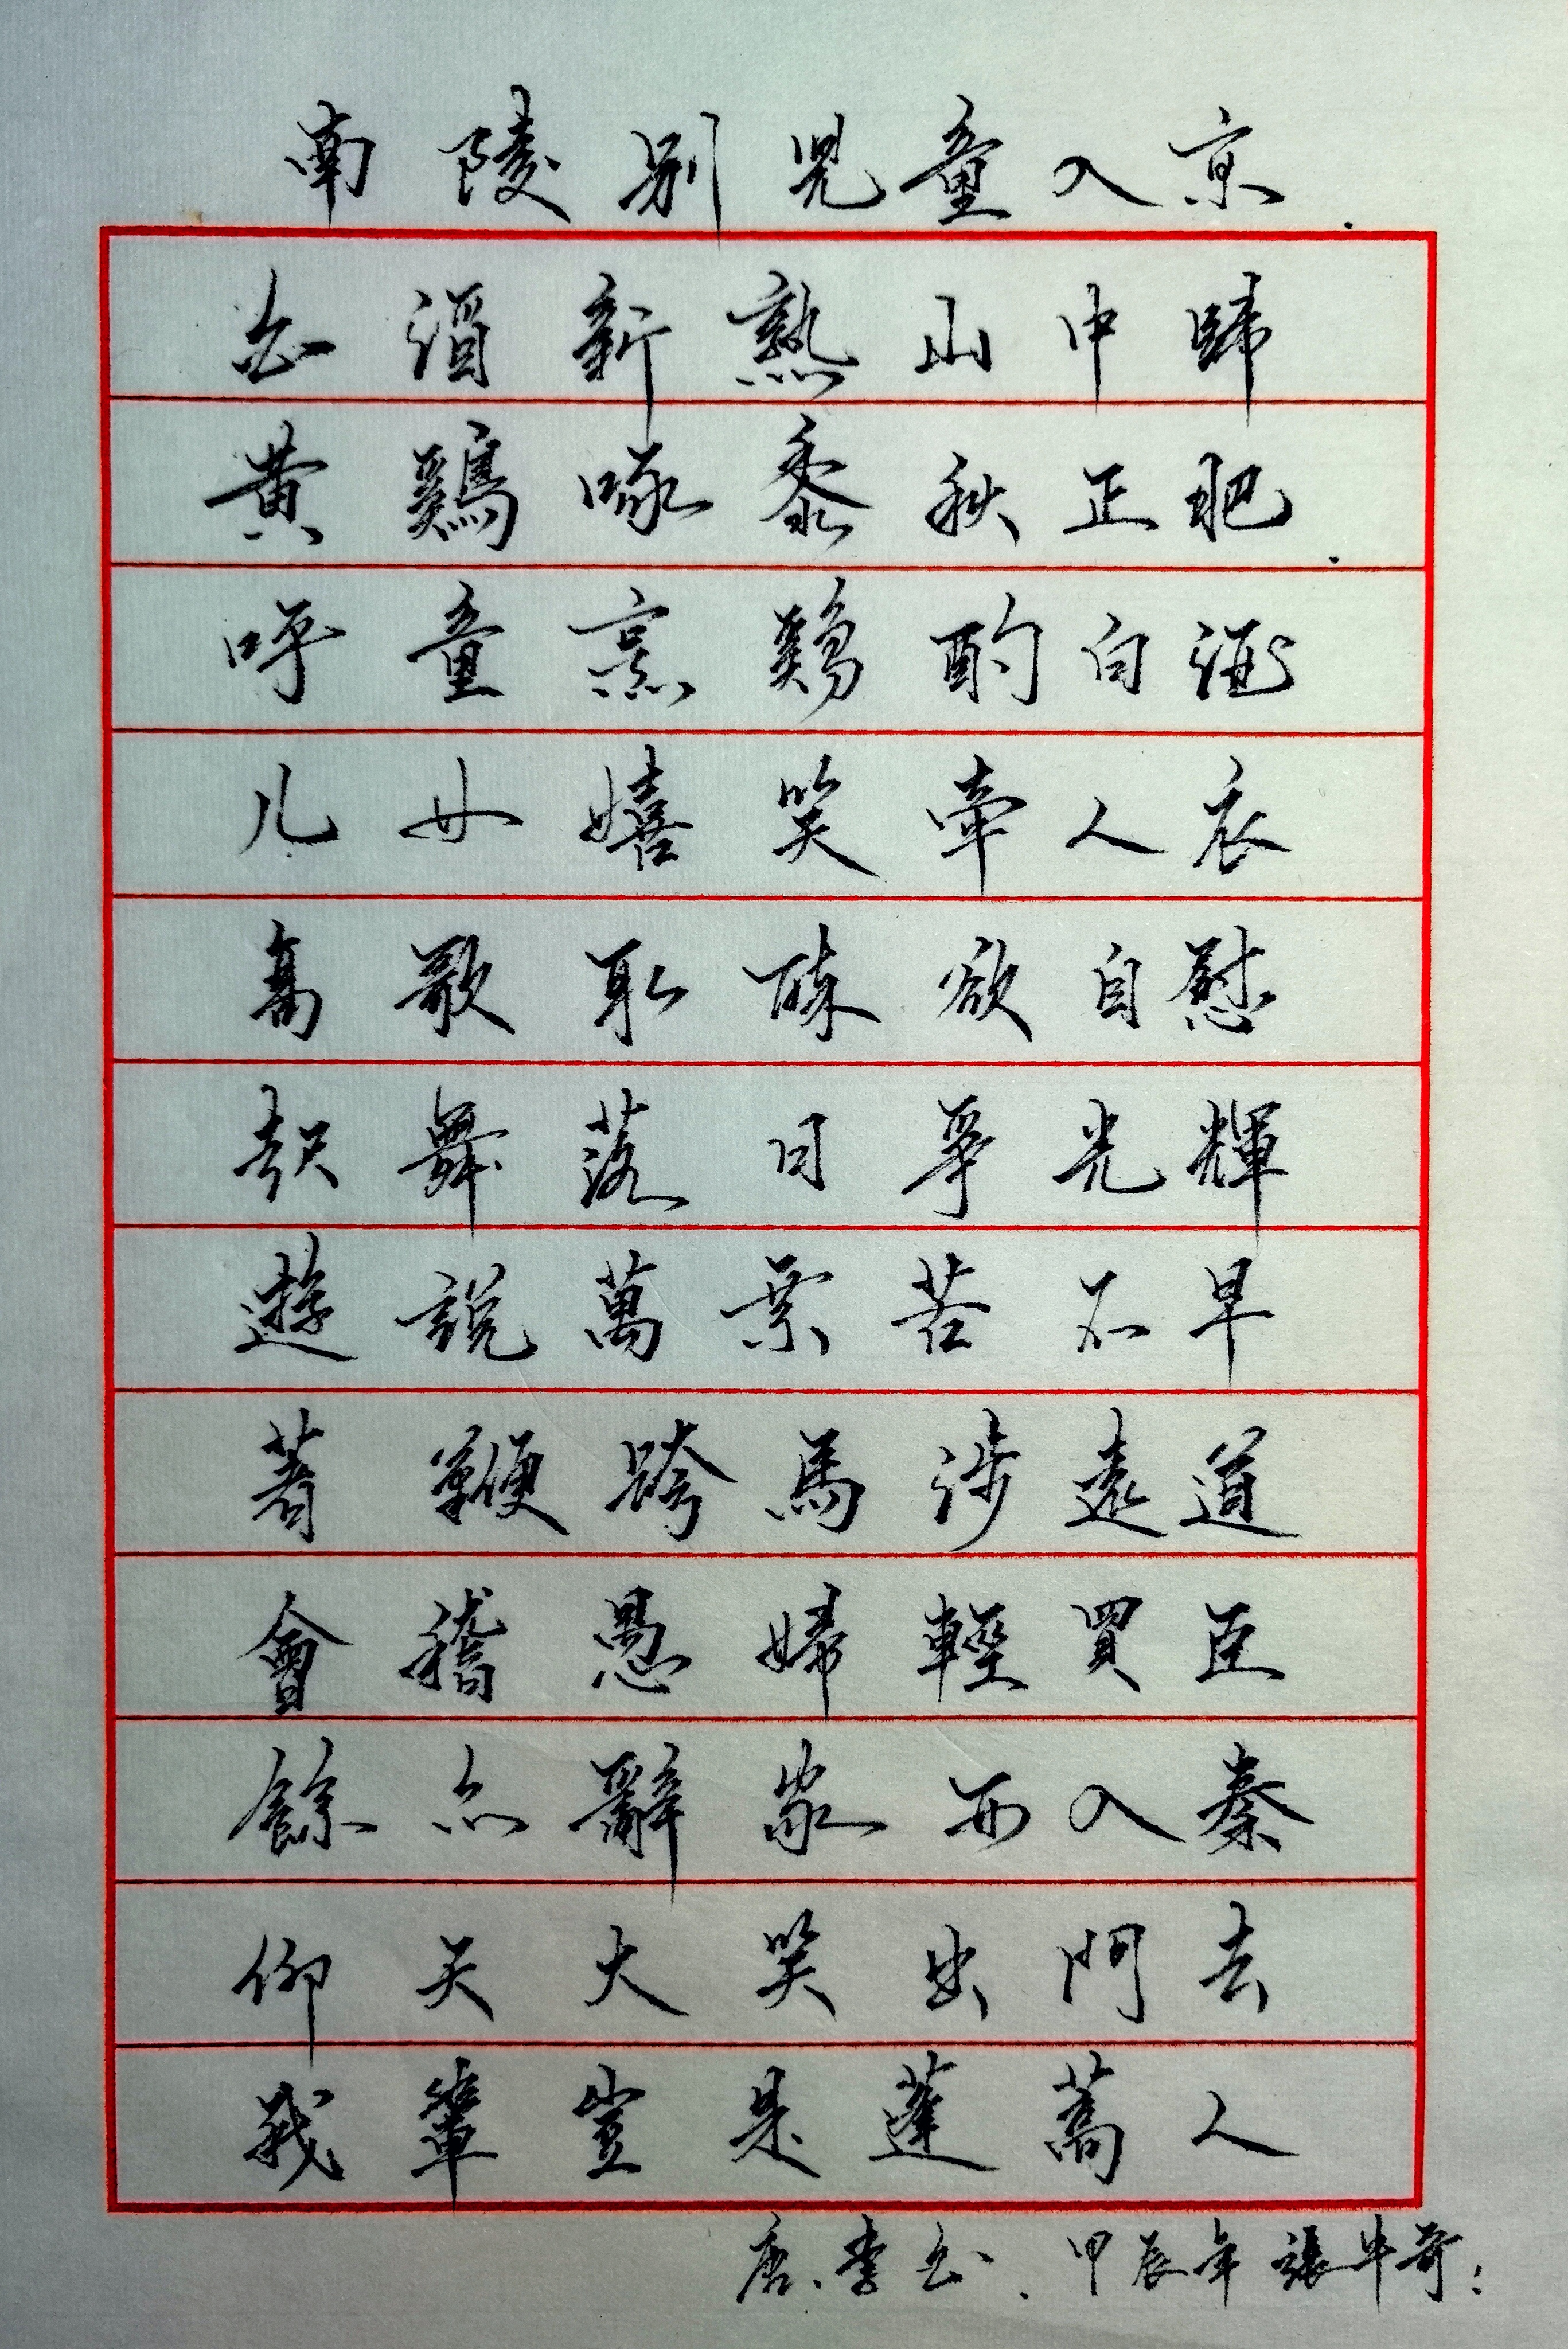 南陵别兒童入京
白酒新熟山中歸
黄鷄啄黍秋正肥
呼童烹鷄酌白酒
儿女嬉笑牽人衣
高歌取醉欲自慰
起舞落日爭光輝
遊説萬乗苦不早
著鞭跨馬涉遠道
會稽愚婦輕買臣
餘亦辭家西入秦
仰天大笑出門去
我輩豈是蓬蒿人
唐、李白、甲辰年張牛奇